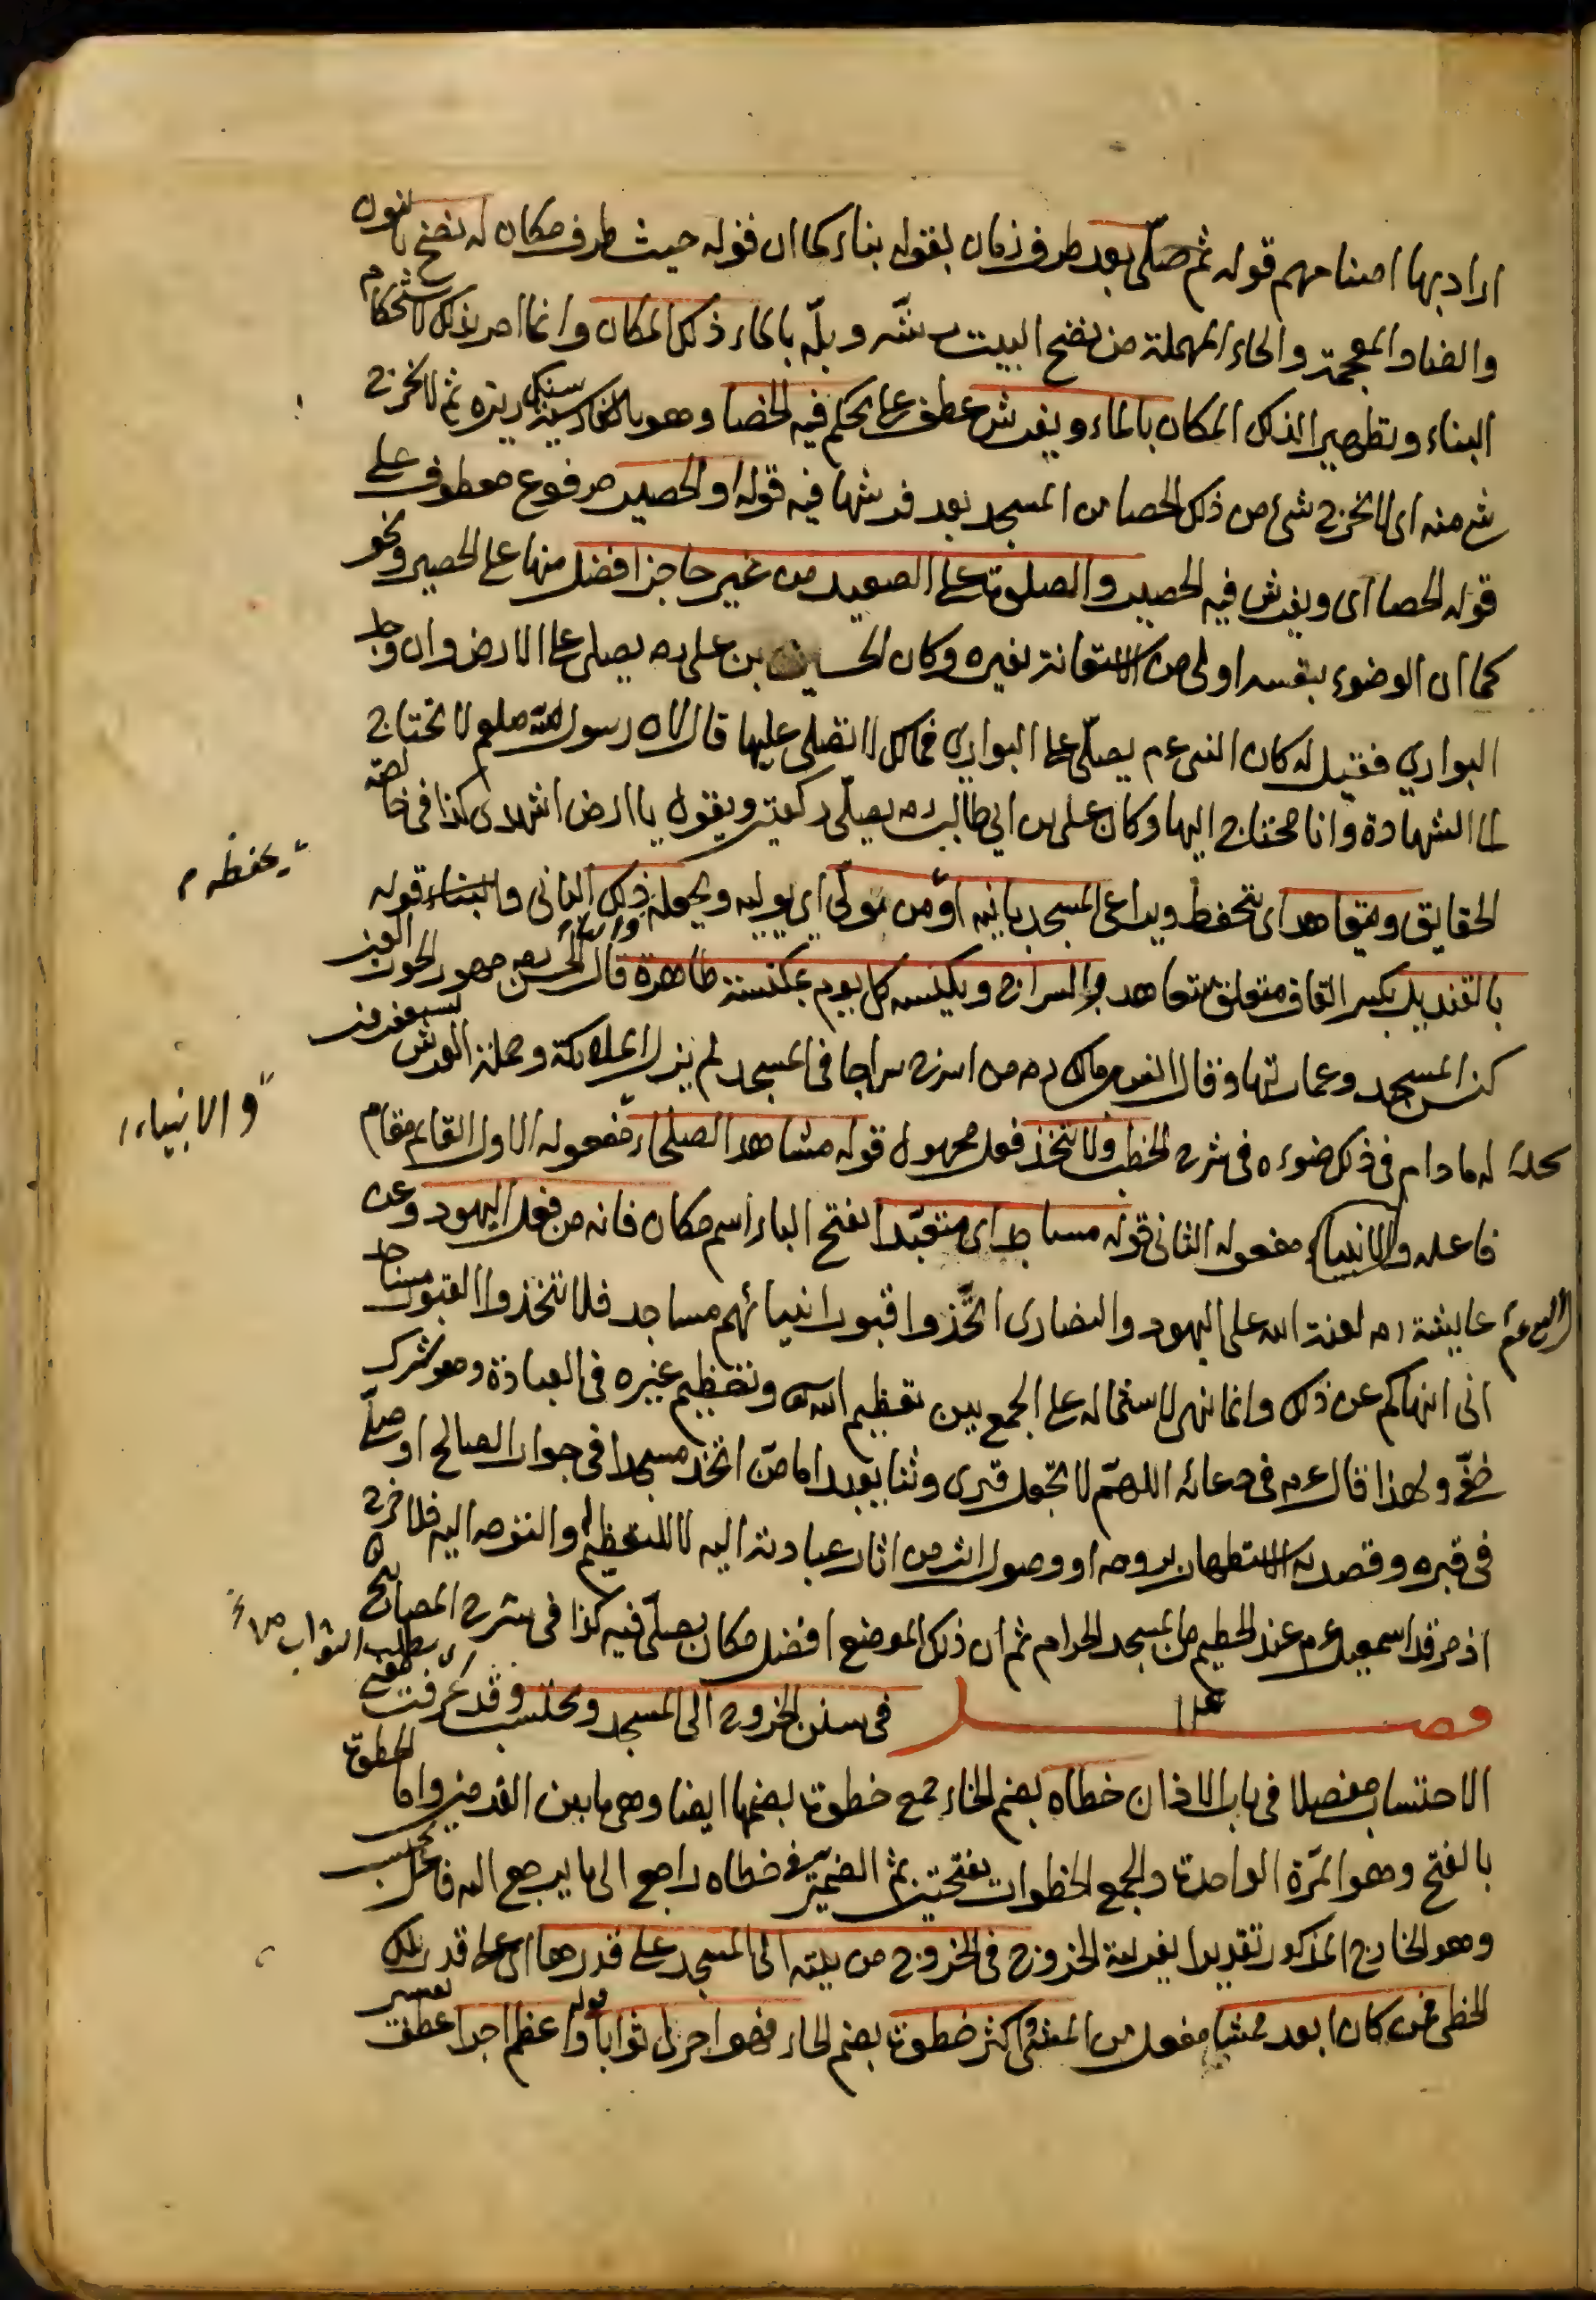 اراد بها اصنامهم قوله ثم صلّى بعد ظرف زمان بقوله بناء كما ان قوله حيث ظرف مكان له نضح بالنون
والضاد المعجمة والحاء المهملة من نضح البيت رشّه وبلّه بالماء ذلك المكان وانما امر بذلك لاستحكام
البناء وتطهيرا لذلك المكان بالماء ويفرش عطف على يحكم فيه الحصا وهو بالفارسية سنك ريزه ثم لا يخرج
شئ منه اى لا يخرج شئ من ذلك الحصا من المسجد بعد فرشها فيه قوله او الحصير مرفوع معطوف على
قوله الحصا اى ويفرش فيه الحصير والصلوة على الصعيد من غير حاجز افضل منها على الحصير ونحو
كما ان الوضوء بنفسه اولى من الاستعانة بغيره وكان الحسين بن على رض يصلى على الارض وان وجد
البوارى فقيل له كان النبى عم يصلّى على البوارى فمالك لا تصلى عليها قال لان رسول الله صلعم لا يحتاج
الى الشهادة وانا محتاج اليها وكان على بن ابى طالب رض يصلّى ركعتين ويقول يا ارض اشهدى كذا فى خالصة
الحقايق ويتعاهد اى يتحفظ ويراعى المسجد بانيه او من تولّى اى يوليه ويجعله ذلك البانى والبناء قوله
يحفظه م
بالقنديل بكسر القاف متعلق بيتعاهد والسراج ويكنسه كل يوم بمكنسة طاهرة قال الحسن رض مهور الحور العين
كنس المسجد وعمارتها وقال انس بن مالك رض من اسرج سراجا فى المسجد لم يزل الملائكة وحملة العرش يستغفرون
له ما دام فى ذلك ضوءه فى شرح الخطب ولا يتخذ فعل مجهول قوله مشاهد الصلحاء مفعوله الاول القائم مقام
والانبياء
فاعله والانبياء مفعوله الثانى قوله مساجد اى متعبّدا بفتح الباء اسم مكان فانه من فعل اليهود وعن
عايشة رض لعنة الله على اليهود والنصارى اتّخذوا قبور انبيائهم مساجد فلا تتخذوا القبور مساجد
انى انهاكم عن ذلك وانما نهى لاشتماله على الجمع بين تعظيم الله وتعظيم غيره فى العبادة وهو شرك
خفّى ولهذا قال عم فى دعائه اللهمّ لا تجعل قبرى وثنا يعبد اما من اتخذ مسجدا فى جوار الصالح او صلّى
فى قبره وقصد به الاستظهار بروحه او وصول اثر من اثار عبادته اليه لا للتعظيم له والتوجه اليه فلا حرج
اذ مرقد اسمعيل عم عند الحطيم من المسجد الحرام ثم ان ذلك الموضع افضل مكان يصلّى فيه كذا فى شرح المصابيح
فصل فى سنن الخروج الى المسجد ويحتسب وقد عرّفت معنى
يطلب الثواب
الاحتساب مفصلا فى باب الاذان خطاه بضم الخاء جمع خطوة بضمها ايضا وهى ما بين القدمين واما الخطوة
بالفتح وهو المرّة الواحدة والجمع الخطوات بفتحتين ثم الضمير فى خطاه راجع الى ما يرجع اليه فاعل يحتسب
وهو الخارج المذكور تقديرا بقرينة الخروج فى الخروج من بيته الى المسجد على قدرها اى على قدر تلك
الخطى فمن كان ابعد ممشى مفعل من المشى واكثر خطوة بضم الخاء فهو اجزل ثوابا قوله واعظم اجرا عطف تفسير